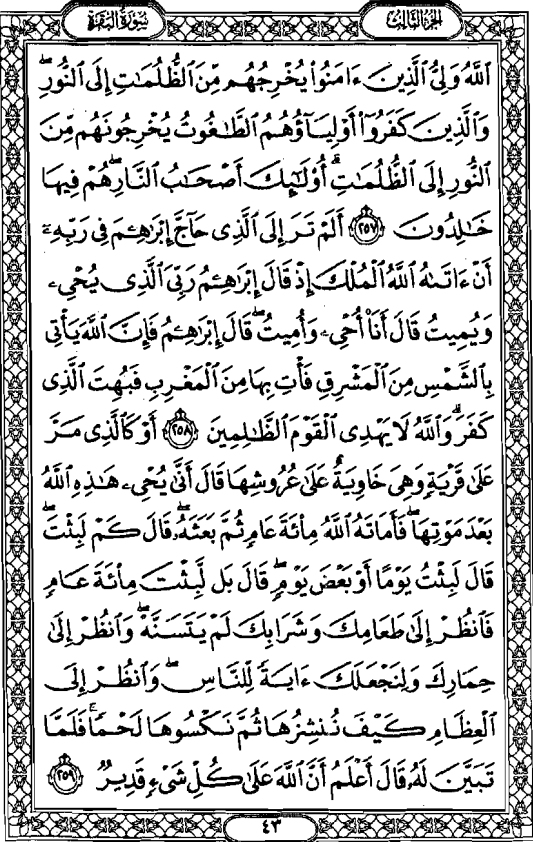 الجزء الثالث
سورة البقرة
ٱللَّهُ وَلِيُّ ٱلَّذِينَ ءَامَنُوا۟ يُخْرِجُهُم مِّنَ ٱلظُّلُمَٰتِ إِلَى ٱلنُّورِ ۖ
وَٱلَّذِينَ كَفَرُوٓا۟ أَوْلِيَآؤُهُمُ ٱلطَّٰغُوتُ يُخْرِجُونَهُم مِّنَ
ٱلنُّورِ إِلَى ٱلظُّلُمَٰتِ ۗ أُو۟لَٰٓئِكَ أَصْحَٰبُ ٱلنَّارِ ۖ هُمْ فِيهَا
خَٰلِدُونَ ٢٥٧ أَلَمْ تَرَ إِلَى ٱلَّذِى حَآجَّ إِبْرَٰهِۦمَ فِى رَبِّهِۦٓ
أَنْ ءَاتَىٰهُ ٱللَّهُ ٱلْمُلْكَ إِذْ قَالَ إِبْرَٰهِۦمُ رَبِّىَ ٱلَّذِى يُحْىِۦ
وَيُمِيتُ قَالَ أَنَا۠ أُحْىِۦ وَأُمِيتُ ۖ قَالَ إِبْرَٰهِۦمُ فَإِنَّ ٱللَّهَ يَأْتِى
بِٱلشَّمْسِ مِنَ ٱلْمَشْرِقِ فَأْتِ بِهَا مِنَ ٱلْمَغْرِبِ فَبُهِتَ ٱلَّذِى
كَفَرَ ۗ وَٱللَّهُ لَا يَهْدِى ٱلْقَوْمَ ٱلظَّٰلِمِينَ ٢٥٨ أَوْ كَٱلَّذِى مَرَّ
عَلَىٰ قَرْيَةٍ وَهِىَ خَاوِيَةٌ عَلَىٰ عُرُوشِهَا قَالَ أَنَّىٰ يُحْىِۦ هَٰذِهِ ٱللَّهُ
بَعْدَ مَوْتِهَا ۖ فَأَمَاتَهُ ٱللَّهُ مِا۟ئَةَ عَامٍ ثُمَّ بَعَثَهُۥ ۖ قَالَ كَمْ لَبِثْتَ ۖ
قَالَ لَبِثْتُ يَوْمًا أَوْ بَعْضَ يَوْمٍ ۖ قَالَ بَل لَّبِثْتَ مِا۟ئَةَ عَامٍ
فَٱنظُرْ إِلَىٰ طَعَامِكَ وَشَرَابِكَ لَمْ يَتَسَنَّهْ ۖ وَٱنظُرْ إِلَىٰ
حِمَارِكَ وَلِنَجْعَلَكَ ءَايَةً لِّلنَّاسِ ۖ وَٱنظُرْ إِلَى
ٱلْعِظَامِ كَيْفَ نُنشِزُهَا ثُمَّ نَكْسُوهَا لَحْمًا ۚ فَلَمَّا
تَبَيَّنَ لَهُۥ قَالَ أَعْلَمُ أَنَّ ٱللَّهَ عَلَىٰ كُلِّ شَىْءٍ قَدِيرٌ ٢٥٩
٤٣